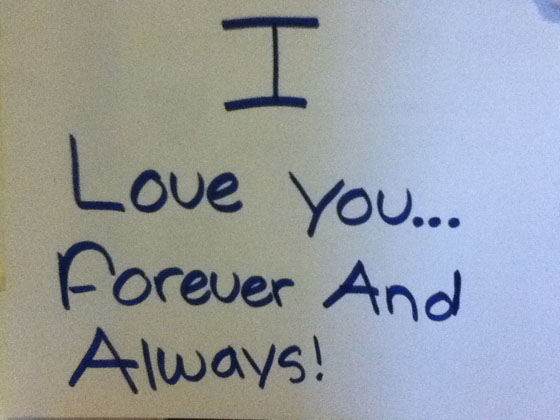 I
Love you...
Forever And
Always!